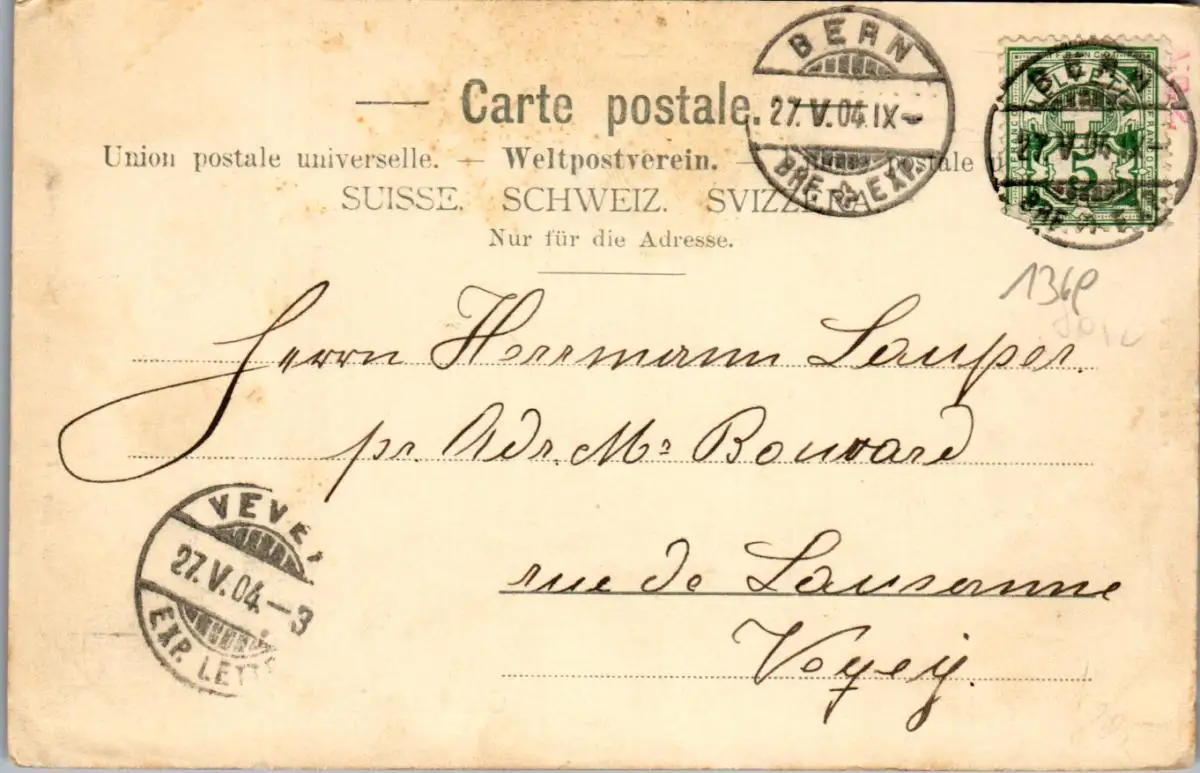 Carte postale.
Union postale universelle. — Weltpostverein. — postale u
SUISSE. SCHWEIZ. SVIZZERA.
Nur für die Adresse.
BERN
27.V.04.IX—
BRF. EXP.
BERN
HELVETIA
5
1369
Herrn Herrmann Lauper.
pr. Adr. Mr Bouvard
rue de Lausanne
Vevey.
VEVE
27.V.04.—3
EXP. LETT